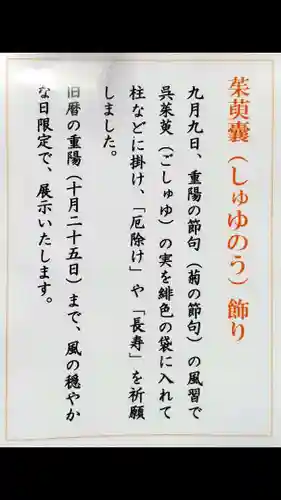 茱萸嚢（しゅゆのう）飾り
九月九日、重陽の節句（菊の節句）の風習で
呉茱萸（ごしゅゆ）の実を緋色の袋に入れて
柱などに掛け、「厄除け」や「長寿」を祈願
しました。
旧暦の重陽（十月二十五日）まで、風の穏やか
な日限定で、展示いたします。